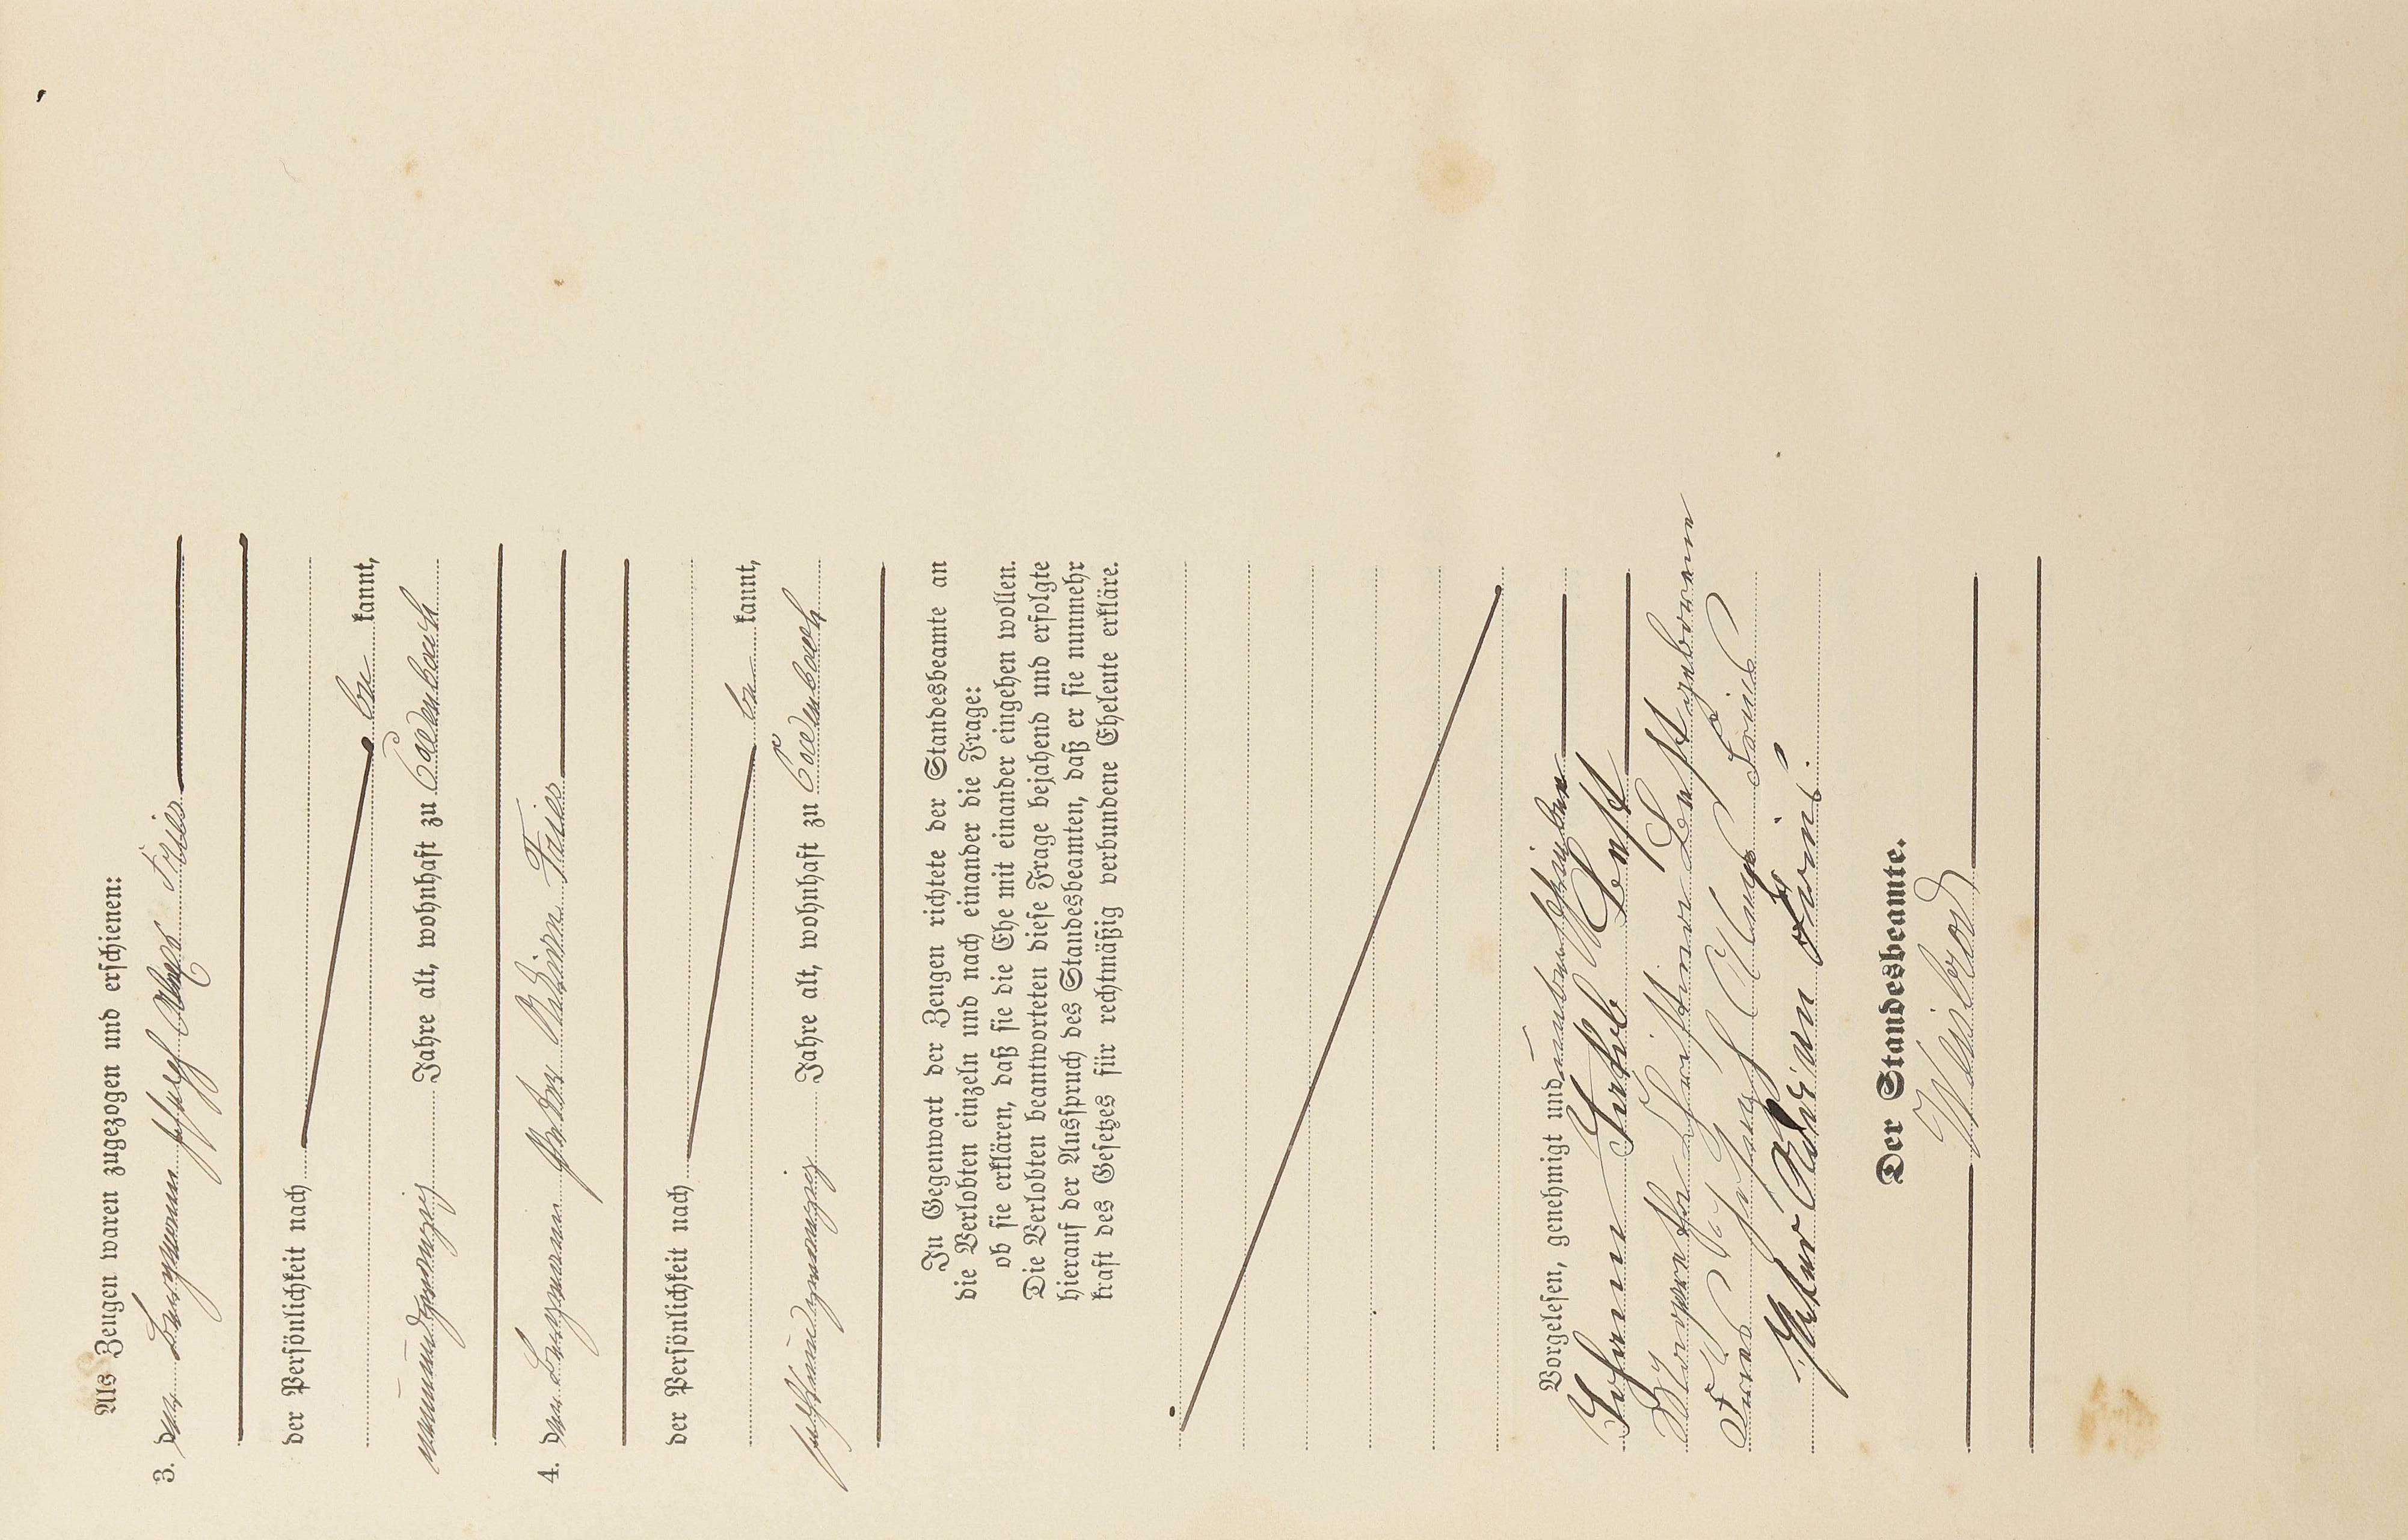 Als Zeugen waren zugezogen und erschienen:
3. den Bergmann Joseph Aloys Fries
der Persönlichkeit nach
be kannt,
neunundzwanzig Jahre alt, wohnhaft zu Cadenbach
4. den Bergmann Peter Adrian Fries
der Persönlichkeit nach
be kannt,
sechsundzwanzig Jahre alt, wohnhaft zu Cadenbach
In Gegenwart der Zeugen richtete der Standesbeamte an
die Verlobten einzeln und nach einander die Frage:
ob sie erklären, daß sie die Ehe mit einander eingehen wollen.
Die Verlobten beantworteten diese Frage bejahend und erfolgte
hierauf der Ausspruch des Standesbeamten, daß er sie nunmehr
kraft des Gesetzes für rechtmäßig verbundene Eheleute erkläre.
Vorgelesen, genehmigt und unterschrieben
Johann Jakob Best
Margaretha Christina Best geborenen
Fries Joseph Aloys Fries
Peter Adrian Fries.
Der Standesbeamte.